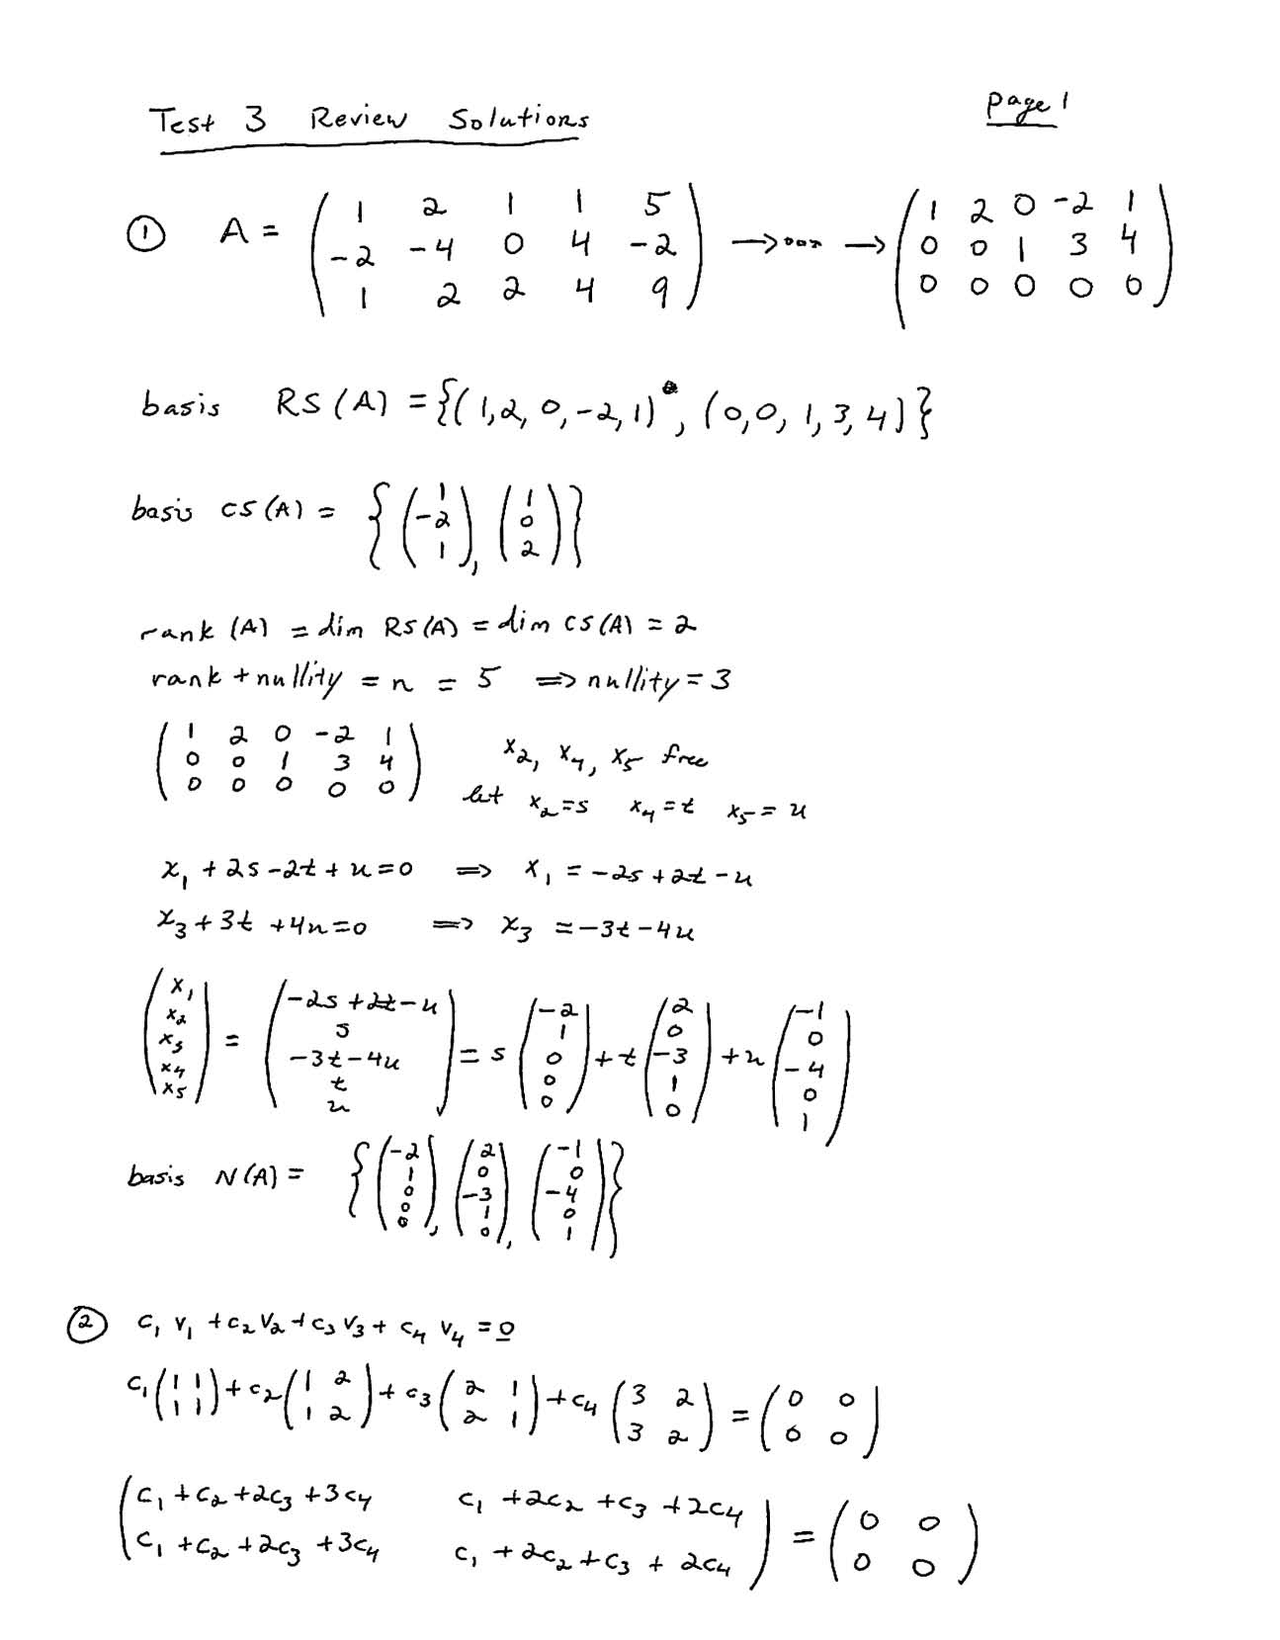 Test 3 Review Solutions page 1
① A = ( 1 2 1 1 5 ) →...→ ( 1 2 0 -2 1 )
( -2 -4 0 4 -2 ) ( 0 0 1 3 4 )
( 1 2 2 4 9 ) ( 0 0 0 0 0 )
basis RS(A) = {(1,2,0,-2,1), (0,0,1,3,4)}
basis CS(A) = { ( 1 -2 1 ), ( 1 0 2 ) }
rank (A) = dim RS(A) = dim CS(A) = 2
rank + nullity = n = 5 ⇒ nullity = 3
( 1 2 0 -2 1 )
( 0 0 1 3 4 ) x₂, x₄, x₅ free
( 0 0 0 0 0 ) let x₂=s x₄=t x₅=u
x₁ + 2s - 2t + u = 0 ⇒ x₁ = -2s + 2t - u
x₃ + 3t + 4u = 0 ⇒ x₃ = -3t - 4u
( x₁ ) ( -2s + 2t - u ) ( -2 ) ( 2 ) ( -1 )
( x₂ ) ( s ) ( 1 ) ( 0 ) ( 0 )
( x₃ ) = ( -3t - 4u ) = s ( 0 ) + t ( -3 ) + u ( -4 )
( x₄ ) ( t ) ( 0 ) ( 1 ) ( 0 )
( x₅ ) ( u ) ( 0 ) ( 0 ) ( 1 )
basis N(A) = { ( -2 1 0 0 0 ), ( 2 0 -3 1 0 ), ( -1 0 -4 0 1 ) }
② c₁ v₁ + c₂ v₂ + c₃ v₃ + c₄ v₄ = 0
c₁ ( 1 1 ) + c₂ ( 1 2 ) + c₃ ( 2 1 ) + c₄ ( 3 2 ) = ( 0 0 )
( 1 1 ) ( 1 2 ) ( 2 1 ) ( 3 2 ) ( 0 0 )
( c₁ + c₂ + 2c₃ + 3c₄ c₁ + 2c₂ + c₃ + 2c₄ ) = ( 0 0 )
( c₁ + c₂ + 2c₃ + 3c₄ c₁ + 2c₂ + c₃ + 2c₄ ) ( 0 0 )